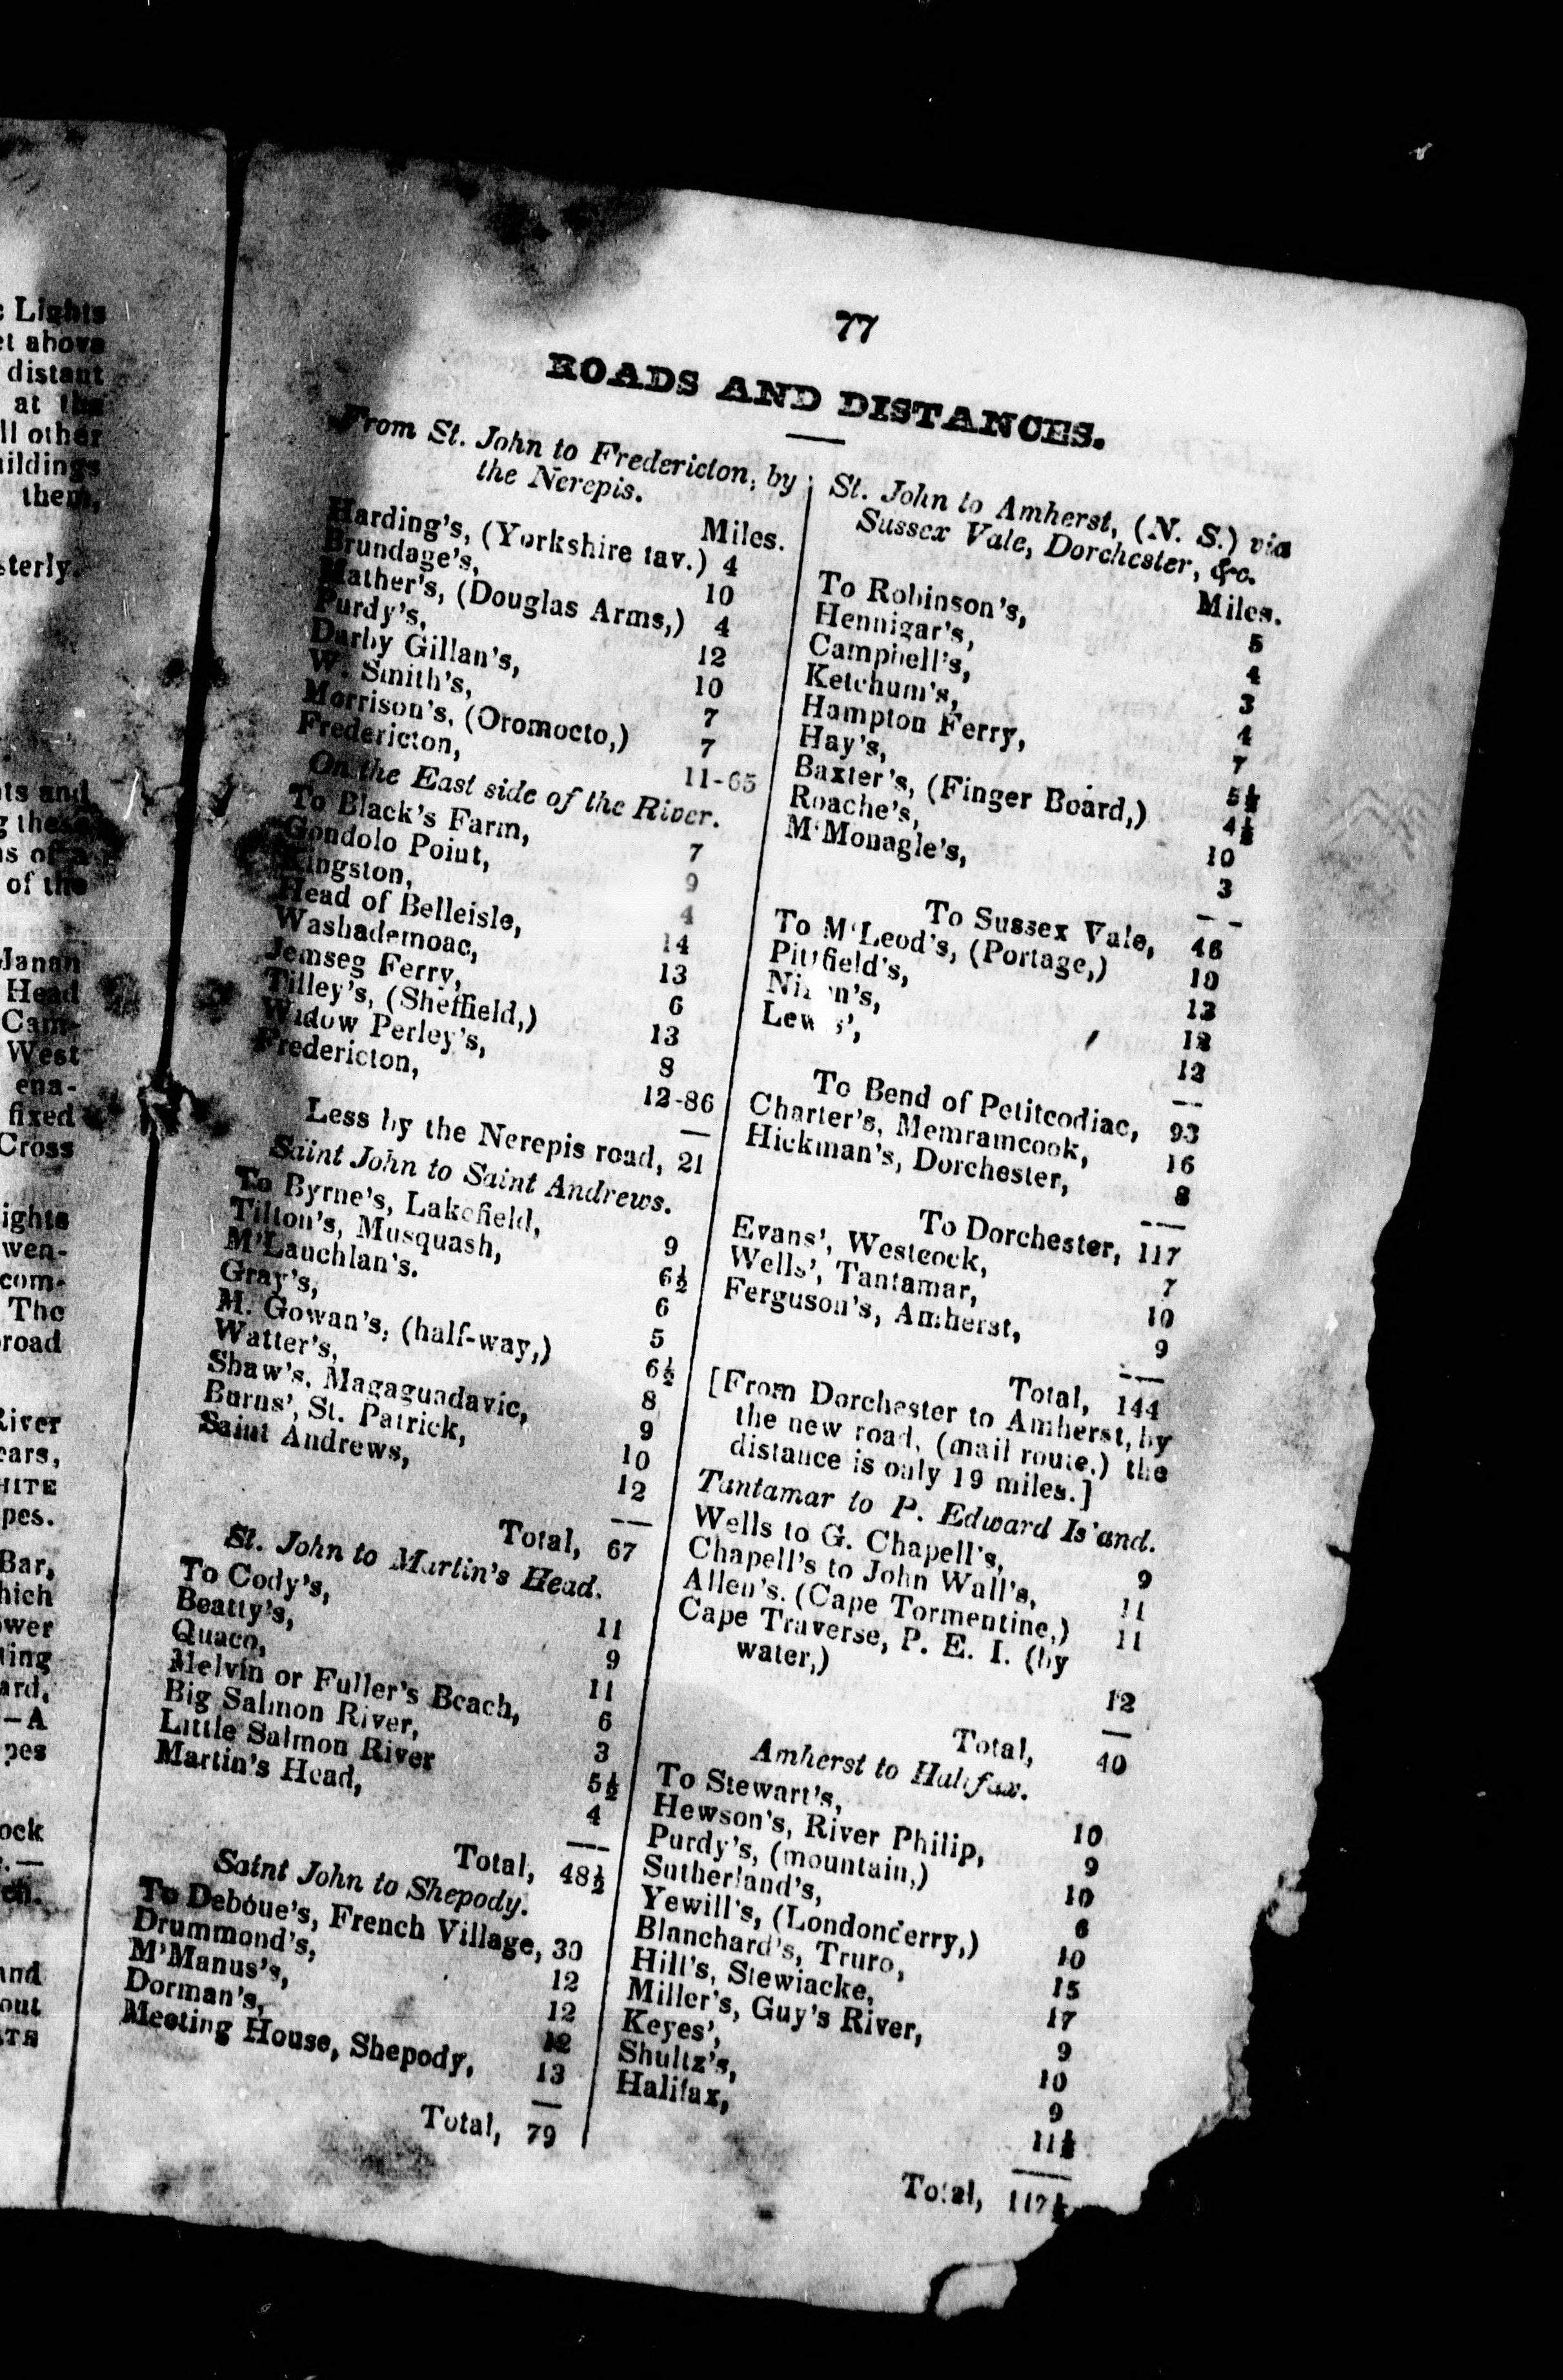 Lights
above
distant
at the
all other
buildings
them,
sterly.
and
these
of a
of the
Janan
Head
Cam-
West
ena-
fixed
Cross
ights
wen-
com-
The
road
River
ears,
HITE
pes.
Bar,
hich
ower
ting
ard,
—A
pes
ock
and
out
77
ROADS AND DISTANCES.
From St. John to Fredericton, by
the Nerepis.
Miles.
Harding's, (Yorkshire tav.) 4
Brundage's, 10
Mather's, (Douglas Arms,) 4
Purdy's, 12
Darby Gillan's, 10
W. Smith's, 7
Morrison's, (Oromocto,) 7
Fredericton, 11-65
On the East side of the River.
To Black's Farm, 7
Gondolo Point, 9
Kingston, 4
Head of Belleisle, 14
Washademoac, 13
Jemseg Ferry, 6
Tilley's, (Sheffield,) 13
Widow Perley's, 8
Fredericton, 12-86
Less by the Nerepis road, 21
Saint John to Saint Andrews.
To Byrne's, Lakefield, 9
Tilton's, Musquash, 6½
M'Lauchlan's. 6
Gray's, 5
M. Gowan's, (half-way,) 6½
Watter's, 8
Shaw's, Magaguadavic, 9
Burns', St. Patrick, 10
Saint Andrews, 12
Total, 67
St. John to Martin's Head.
To Cody's, 11
Beatty's, 9
Quaco, 11
Melvin or Fuller's Beach, 6
Big Salmon River, 3
Little Salmon River 5½
Martin's Head, 4
Total, 48½
Saint John to Shepody.
To Deboue's, French Village, 30
Drummond's, 12
M'Manus's, 12
Dorman's, 12
Meeting House, Shepody, 13
Total, 79
St. John to Amherst, (N. S.) via
Sussex Vale, Dorchester, &c.
Miles.
To Robinson's, 5
Hennigar's, 4
Campbell's, 3
Ketchum's, 4
Hampton Ferry, 7
Hay's, 5½
Baxter's, (Finger Board,) 4½
Roache's, 10
M'Monagle's, 3
To Sussex Vale, 46
To M'Leod's, (Portage,) 10
Pittfield's, 13
12
12
To Bend of Petitcodiac, 93
Charter's, Memramcook, 16
Hickman's, Dorchester, 8
To Dorchester, 117
Evans', Westcock, 7
Wells', Tantamar, 10
Ferguson's, Amherst, 9
Total, 144
[From Dorchester to Amherst, by
the new road, (mail route,) the
distance is only 19 miles.]
Tantamar to P. Edward Island.
Wells to G. Chapell's, 9
Chapell's to John Wall's, 11
Allen's. (Cape Tormentine,) 11
Cape Traverse, P. E. I. (by
water,) 12
Total, 40
Amherst to Halifax.
To Stewart's, 10
Hewson's, River Philip, 9
Purdy's, (mountain,) 10
Sutherland's, 6
Yewill's, (Londonderry,) 10
Blanchard's, Truro, 15
Hill's, Stewiacke, 17
Miller's, Guy's River, 9
Keyes', 10
Shultz's, 9
Halifax, 11½
Total, 117½